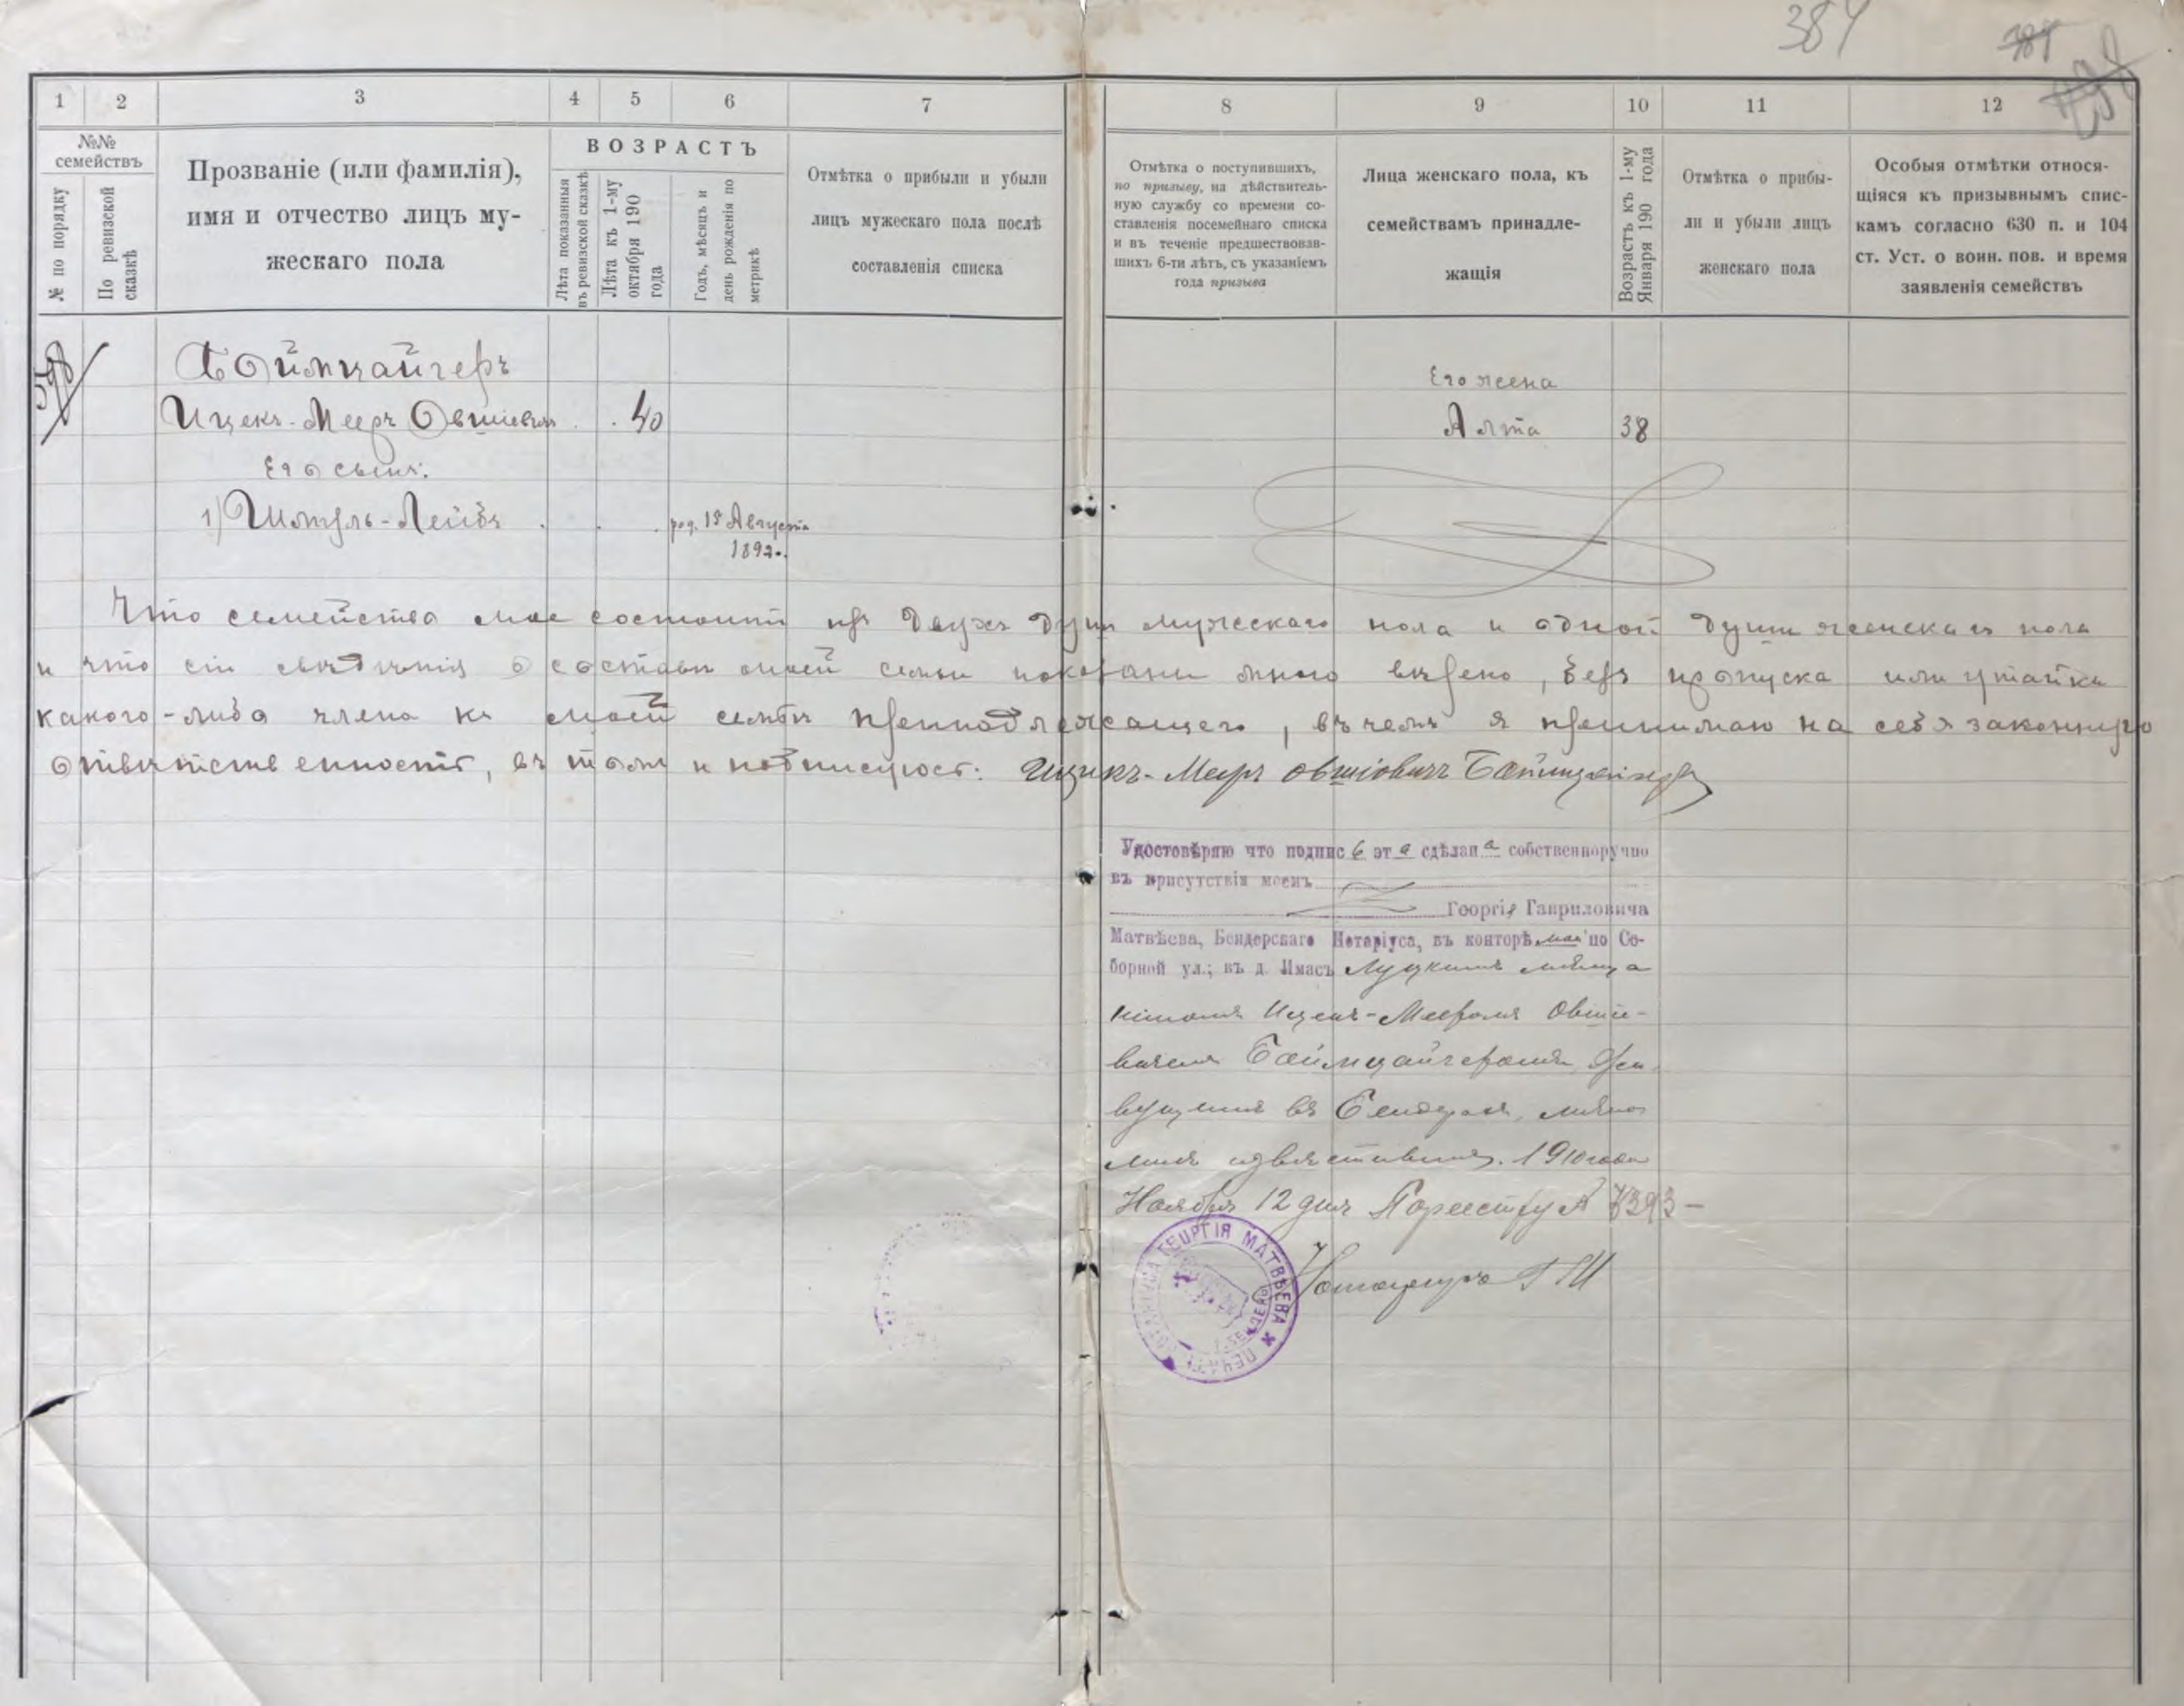 384
1 2 3 4 5 6 7 8 9 10 11 12
№№ семействъ
№ по порядку
По ревизской сказкѣ
Прозваніе (или фамилія),
имя и отчество лицъ му-
жескаго пола
ВОЗРАСТЪ
Лѣта показанныя въ ревизской сказкѣ
Лѣта къ 1-му октября 190 года
Годъ, мѣсяцъ и день рожденія по метрикѣ
Отмѣтка о прибыли и убыли
лицъ мужескаго пола послѣ
составленія списка
Отмѣтка о поступившихъ,
по призыву, на дѣйствитель-
ную службу со времени со-
ставленія посемейнаго списка
и въ теченіе предшествовав-
шихъ 6-ти лѣтъ, съ указаніемъ
года призыва
Лица женскаго пола, къ
семействамъ принадле-
жащія
Возрастъ къ 1-му Января 190 года
Отмѣтка о прибы-
ли и убыли лицъ
женскаго пола
Особыя отмѣтки относя-
щіяся къ призывнымъ спис-
камъ согласно 630 п. и 104
ст. Уст. о воин. пов. и время
заявленія семействъ
Боймцайгеръ
Его жена
Ицекъ-Мееръ Овшіевичъ 40 Алта 38
Его сынъ:
1) Шмуль-Лейбъ род. 15 Августа
189
Что семейство мое состоитъ изъ двухъ душъ мужескаго пола и одной души женскаго пола
и что сіи свѣдѣнія о составѣ моей семьи показаны мною вѣрно, безъ пропуска или утайки
какого-либо члена къ моей семьѣ принадлежащего, въ чемъ я принимаю на себя законную
отвѣтственность, въ томъ и подписуюсь: Ицикъ-Мееръ Овшіовичъ Боймцайгеръ
Удостовѣряю что подпись эта сдѣлана собственноручно
въ присутствіи моемъ
Георгія Гавриловича
Матвѣева, Бендерскаго Нотаріуса, въ конторѣ моей по Со-
борной ул.; въ д. Имасъ Луцкимъ мѣща
ниномъ Ицекъ-Мееромъ Овшіе-
вичемъ Боймцайгеромъ, жи
вущимъ въ Бендерахъ, лично
мнѣ извѣстнымъ. 1910 года
Ноября 12 дня По реестру № 7393-
Нотаріусъ Г М
ГЕОРГІЯ МАТВѢЕВА ПЕЧАТЬ НОТАРІУСА
Г. БЕНДЕРЫ